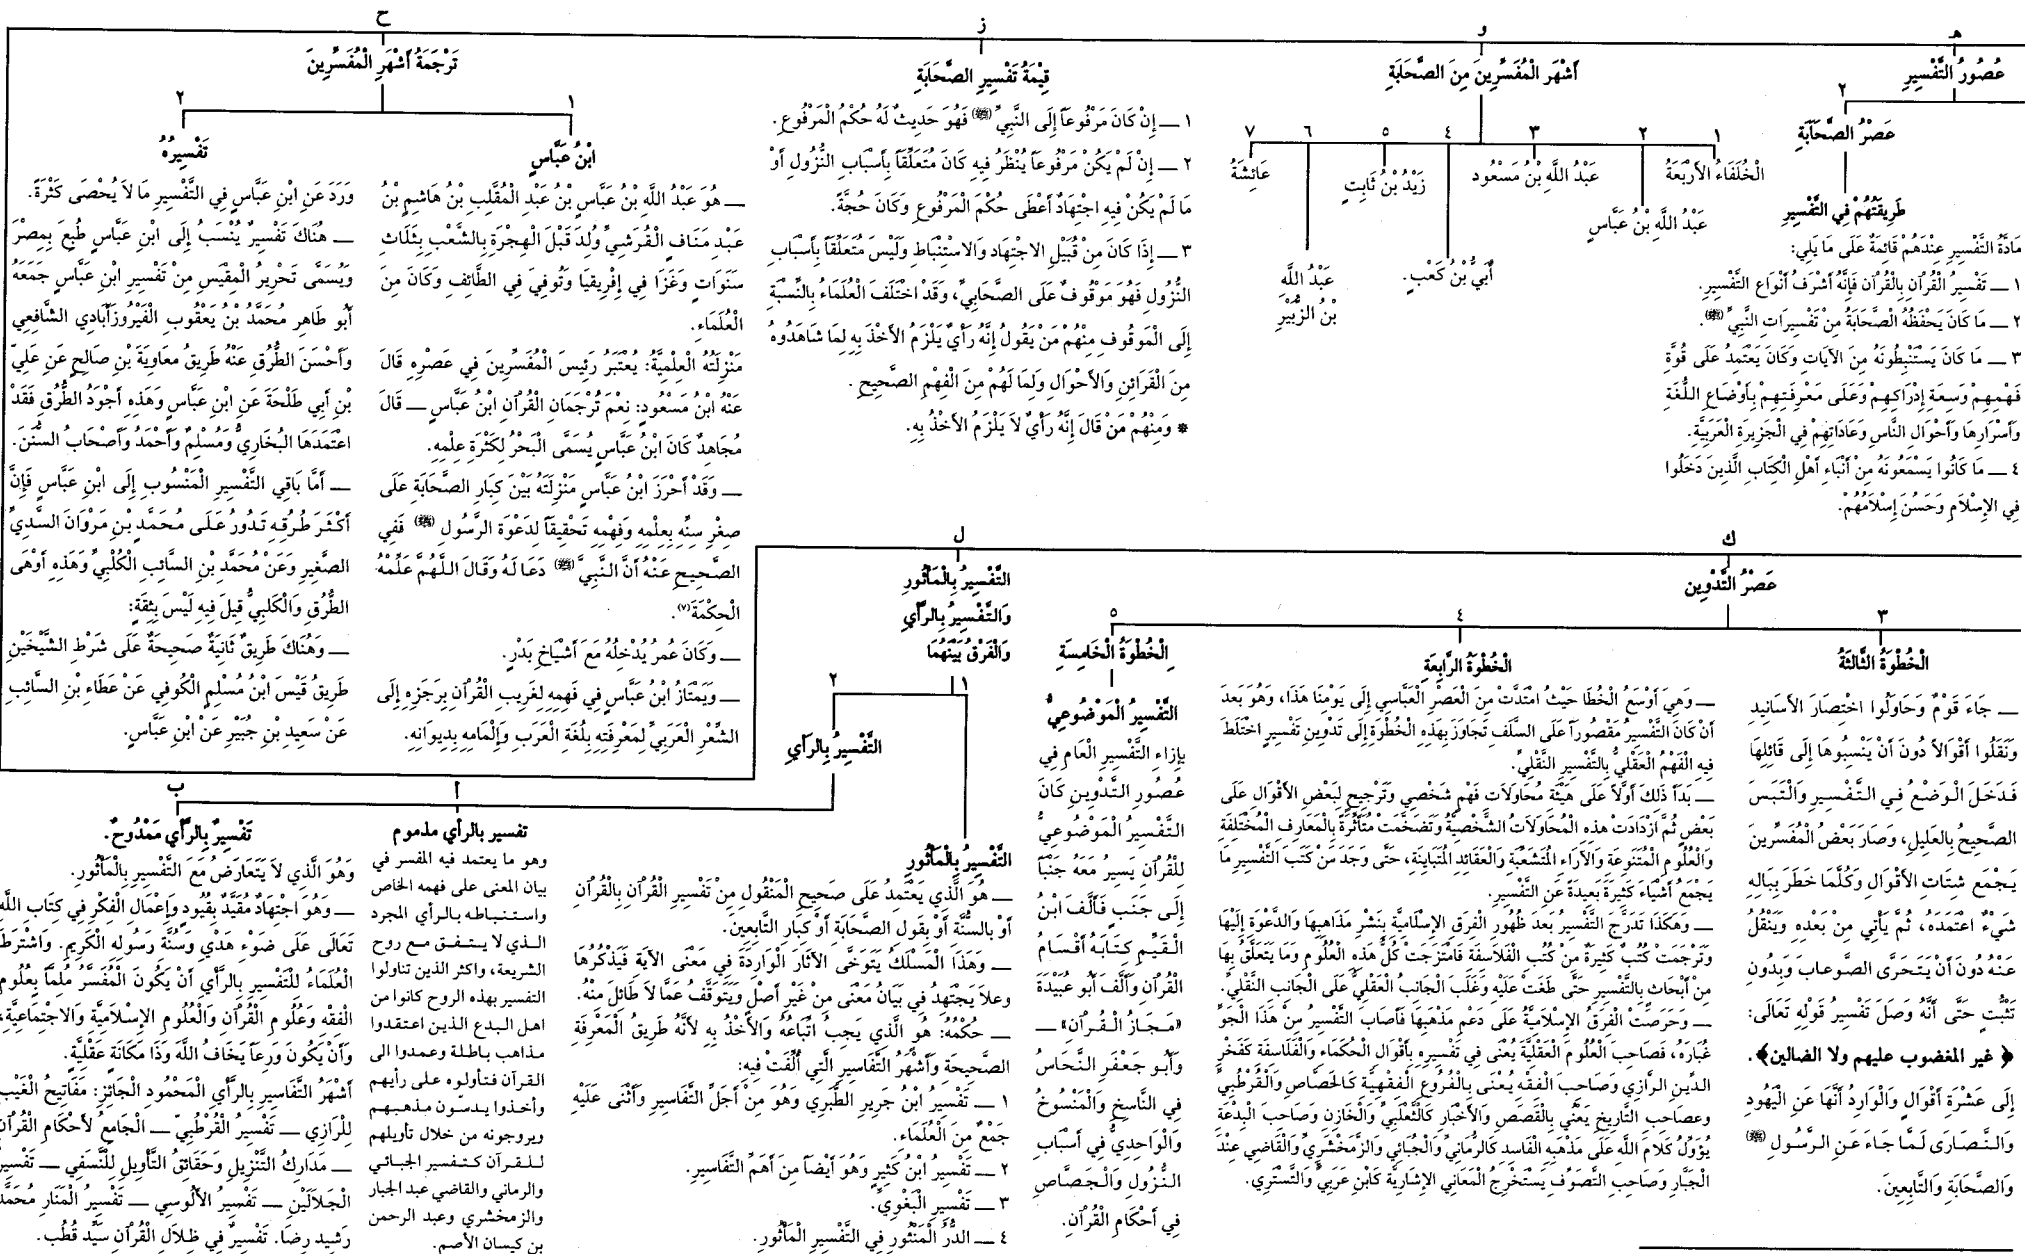 هـ
عُصُورُ التَّفْسِيرِ
٢
عَصْرُ الصَّحَابَةِ
طَرِيقَتُهُمْ فِي التَّفْسِيرِ
مَادَّةُ التَّفْسِيرِ عِنْدَهُمْ قَائِمَةٌ عَلَى مَا يَلِي:
١ ـــ تَفْسِيرُ الْقُرْآنِ بِالْقُرْآنِ فَإِنَّهُ أَشْرَفُ أَنْوَاعِ التَّفْسِيرِ.
٢ ـــ مَا كَانَ يَحْفَظُهُ الصَّحَابَةُ مِنْ تَفْسِيرَاتِ النَّبِيِّ ﷺ.
٣ ـــ مَا كَانَ يَسْتَنْبِطُونَهُ مِنَ الآيَاتِ وَكَانَ يَعْتَمِدُ عَلَى قُوَّةِ
فَهْمِهِمْ وَسِعَةِ إِدْرَاكِهِمْ وَعَلَى مَعْرِفَتِهِمْ بِأَوْضَاعِ اللُّغَةِ
وَأَسْرَارِهَا وَأَحْوَالِ النَّاسِ وَعَادَاتِهِمْ فِي الْجَزِيرَةِ الْعَرَبِيَّةِ.
٤ ـــ مَا كَانُوا يَسْمَعُونَهُ مِنْ أَنْبَاءِ أَهْلِ الْكِتَابِ الَّذِينَ دَخَلُوا
فِي الإِسْلاَمِ وَحَسُنَ إِسْلاَمُهُمْ.
و
أَشْهَرُ الْمُفَسِّرِينَ مِنَ الصَّحَابَةِ
١
الْخُلَفَاءُ الأَرْبَعَةُ
٢
عَبْدُ اللَّهِ بْنُ عَبَّاسٍ
٣
عَبْدُ اللَّهِ بْنُ مَسْعُود
٤
أُبَيُّ بْنُ كَعْبٍ.
٥
زَيْدُ بْنُ ثَابِتٍ
٦
عَبْدُ اللَّهِ
بْنُ الزُّبَيْرِ
٧
عَائِشَةُ
ز
قِيْمَةُ تَفْسِيرِ الصَّحَابَةِ
١ ـــ إِنْ كَانَ مَرْفُوعاً إِلَى النَّبِيِّ ﷺ فَهُوَ حَدِيثٌ لَهُ حُكْمُ الْمَرْفُوعِ.
٢ ـــ إِنْ لَمْ يَكُنْ مَرْفُوعاً يُنْظَرُ فِيهِ كَانَ مُتَعَلِّقَاً بِأَسْبَابِ النُّزُولِ أَوْ
مَا لَمْ يَكُنْ فِيهِ اجْتِهَادٌ أَعْطَى حُكْمَ الْمَرْفُوعِ وَكَانَ حُجَّةً.
٣ ـــ إِذَا كَانَ مِنْ قُبَيْلِ الاجْتِهَادِ وَالاسْتِنْبَاطِ وَلَيْسَ مُتَعَلِّقَاً بِأَسْبَابِ
النُّزُولِ فَهُوَ مَوْقُوفٌ عَلَى الصَّحَابِيِّ، وَقَدْ اخْتَلَفَ الْعُلَمَاءُ بِالنِّسْبَةِ
إِلَى الْمَوْقُوفِ مِنْهُمْ مَنْ يَقُولُ إِنَّهُ رَأْيٌ يَلْزَمُ الأَخْذَ بِهِ لِمَا شَاهَدُوهُ
مِنَ الْقَرَائِنِ وَالأَحْوَالِ وَلِمَا لَهُمْ مِنَ الْفِهْمِ الصَّحِيحِ.
* وَمِنْهُمْ مَنْ قَالَ إِنَّهُ رَأْيٌ لاَ يَلْزَمُ الأَخْذُ بِهِ.
ح
تَرْجَمَةُ أَشْهَرِ الْمُفَسِّرِينَ
١
ابْنُ عَبَّاسٍ
ـــ هُوَ عَبْدُ اللَّهِ بْنُ عَبَّاسٍ بْنُ عَبْدِ الْمُقَّلِبِ بْنُ هَاشِمٍ بْنُ
عَبْدِ مَنَافِ الْقُرَشِيِّ وُلِدَ قَبْلَ الْهِجْرَةِ بِالشَّعْبِ بِثَلَاثِ
سَنَوَاتٍ وَغَزَا فِي إِفْرِيقِيَا وَتُوفِيَ فِي الطَّائِفِ وَكَانَ مِنَ
الْعُلَمَاءِ.
مَنْزِلَتُهُ الْعِلْمِيَّةُ: يُعْتَبَرُ رَئِيسَ الْمُفَسِّرِينَ فِي عَصْرِهِ قَالَ
عَنْهُ ابْنُ مَسْعُودٍ: نِعْمَ تُرْجَمَانِ الْقُرْآنِ ابْنُ عَبَّاسٍ ـــ قَالَ
مُجَاهِدٌ كَانَ ابْنُ عَبَّاسٍ يُسَمَّى الْبَحْرُ لِكَثْرَةِ عِلْمِهِ.
ـــ وَقَدْ أَحْرَزَ ابْنُ عَبَّاسٍ مَنْزِلَتَهُ بَيْنَ كِبَارِ الصَّحَابَةِ عَلَى
صِغْرِ سِنِّهِ بِعِلْمِهِ وَفَهْمِهِ تَحْقِيقَاً لِدَعْوَةِ الرَّسُولِ ﷺ فَفِي
الصَّحِيحِ عَنْهُ أَنَّ النَّبِيَّ ﷺ دَعَا لَهُ وَقَالَ اللَّهُمَّ عَلِّمْهُ
الْحِكْمَةَ(٧).
ـــ وَكَانَ عُمَرُ يُدْخِلُهُ مَعَ أَشْيَاخِ بَدْرٍ.
ـــ وَيَمْتَازُ ابْنُ عَبَّاسٍ فِي فَهِمِهِ لِغَرِيبِ الْقُرْآنِ بِرَجَزِهِ إِلَى
الشِّعْرِ الْعَرَبِيِّ لِمَعْرِفَتِهِ بِلُغَةِ الْعَرَبِ وَإِلْمَامِهِ بِدِيوَانِهِ.
٢
تَفْسِيرُهُ
وَرَدَ عَنِ ابْنِ عَبَّاسٍ فِي التَّفْسِيرِ مَا لاَ يُحْصَى كَثْرَةً.
ـــ هُنَاكَ تَفْسِيرٌ يُنْسَبُ إِلَى ابْنِ عَبَّاسٍ طُبِعَ بِمِصْرَ
وَيُسَمَّى تَحْرِيرُ الْمِقْيَسِ مِنْ تَفْسِيرِ ابْنِ عَبَّاسٍ جَمَعَهُ
أَبُو طَاهِرٍ مُحَمَّدٌ بْنُ يَعْقُوبِ الْفَيْرُوزَآبَادِي الشَّافِعِي
وَأَحْسَنَ الطُّرُقِ عَنْهُ طَرِيقُ مَعَاوِيَةَ بْنِ صَالِحٍ عَنِ عَلِيِّ
بْنِ أَبِي طَلْحَةَ عَنِ ابْنِ عَبَّاسٍ وَهَذِهِ أَجْوَدُ الطُّرُقِ فَقَدْ
اعْتَمَدَهَا الْبُخَارِيُّ وَمُسْلِمٌ وَأَحْمَدُ وَأَصْحَابُ السُّنَنِ.
ـــ أَمَّا بَاقِي التَّفْسِيرِ الْمَنْسُوبِ إِلَى ابْنِ عَبَّاسٍ فَإِنَّ
أَكْثَرَ طُرُقِهِ تَدُورُ عَلَى مُحَمَّدٍ بْنِ مَرْوَانَ السَّدِيِّ
الصَّغِيرِ وَعَنْ مُحَمَّدٍ بْنِ السَّائِبِ الْكُلْبِيِّ وَهَذِهِ أَوْهَى
الطُّرُقِ وَالْكَلِبِيُّ قِيلَ فِيهِ لَيْسَ بِثِقَةٍ:
ـــ وَهُنَاكَ طَرِيقٌ ثَانِيَةٌ صَحِيحَةٌ عَلَى شَرْطِ الشَّيْخَيْنِ
طَرِيقُ قَيْسَ ابْنُ مُسْلِمٍ الْكُوفِي عَنْ عَطَاءِ بْنِ السَّائِبِ
عَنْ سَعِيدٍ بْنِ جُبَيْرٍ عَنْ ابْنِ عَبَّاسٍ.
ك
عَصْرُ التَّدْوِين
٣
الْخُطْوَةُ الثَّالِثَةُ
ـــ جَاءَ قَوْمٌ وَحَاوَلُوا اخْتِصَارَ الأَسَانِيدِ
وَنَقَلُوا أَقْوَالاً دُونَ أَنْ يَنْسِبُوهَا إِلَى قَائِلِهَا
فَدَخَلَ الْوَضْعُ فِي التَّفْسِيرِ وَالْتَبَسَ
الصَّحِيحُ بِالعَلِيلِ، وَصَارَ بَعْضُ الْمُفَسِّرِينَ
يَجْمَع شَتَاتِ الأَقْوَالِ وَكُلَّمَا خَطَرَ بِبَالِهِ
شَيْءٌ اعْتَمَدَهُ، ثُمَّ يَأْتِي مِنْ بَعْدِهِ وَيَنْقُلُ
عَنْهُ دُونَ أَنْ يَتَحَرَّى الصَّوَابَ وَبِدُونِ
تَثَبُّتٍ حَتَّى أَنَّهُ وَصَلَ تَفْسِيرُ قَوْلِهِ تَعَالَى:
﴿ غير المغضوب عليهم ولا الضالين﴾.
إِلَى عَشْرَةِ أَقْوَالٍ وَالْوَارِدُ أَنَّهَا عَنِ الْيَهُودِ
وَالنَّصَارَى لَمَّا جَاءَ عَنِ الرَّسُولِ ﷺ
وَالصَّحَابَةِ وَالتَّابِعِينَ.
٤
الْخُطْوَةُ الرَّابِعَةِ
ـــ وَهِيَ أَوْسَعُ الْخُطَا حَيْثُ امْتَدَّتْ مِنَ الْعَصْرِ الْعَبَّاسِي إِلَى يَوْمِنَا هَذَا، وَهُوَ بَعدَ
أَنْ كَانَ التَّفْسِيرُ مَقْصُوراً عَلَى السَّلَفِ تَجَاوَزَ بِهَذِهِ الْخُطْوَةِ إِلَى تَدْوِينِ تَفْسِيرٍ اخْتَلَطَ
فِيهِ الْفَهْمُ الْعَقْلِيُّ بِالتَّفْسِيرِ النَّقْلِيِّ.
ـــ بَدَأَ ذَلِكَ أَوَّلاً عَلَى هَيْئَةِ مُحَاوَلَاتِ فَهْمٍ شَخْصِي وَتَرْجِيحٍ لِبَعْضِ الأَقْوَالِ عَلَى
بَعْضٍ ثُمَّ ازْدَادَتْ هذِهِ الْمُحَاوَلَاتُ الشَّخْصِيَّةُ وَتَضَخَّمَتْ مُتَأَثِّرَةً بِالْمَعَارِفِ الْمُخْتَلِفَةِ
وَالْعُلُومِ الْمُتَنَوِعَةِ وَالآرَاءِ الْمُتَشَعِّبَةِ وَالْعَقَائِدِ الْمُتَبَايِنَةِ، حَتَّى وَجَدَ مَنْ كَتَبَ التَّفْسِيرِ مَا
يَجْمَعُ أَشْيَاءَ كَثِيرَةً بَعِيدَةً عَنِ التَّفْسِيرِ.
ـــ وَهَكَذَا تَدَرَّجَ التَّفْسِيرُ بَعدَ ظُهُورِ الْفِرَقِ الإِسْلَامِيَّةِ بِنَشْرِ مَذَاهِبِهَا وَالدَّعْوَةِ إِلَيْهَا
وَتَرْجَمَتْ كُتُبٌ كَثِيرَةٌ مِنْ كُتُبِ الْفَلَاسَفَةِ فَامْتَزَجَتْ كُلُّ هَذِهِ الْعُلُومِ وَمَا يَتَعَلَّقُ بِهَا
مِنْ أَبْحَاثٍ بِالتَّفْسِيرِ حَتَّى طَغَتْ عَلَيْهِ وَغَلَّبَ الْجَانِبُ الْعَقْلِيُّ عَلَى الْجَانِبِ النَّقْلِيِّ.
ـــ وَحَرَصَتْ الْفِرَقُ الإِسْلَامِيَّةُ عَلَى دَعْمِ مَذْهَبِهَا فَأَصَابَ التَّفْسِيرُ مِنْ هَذَا الْجَوِّ
غُبَارَهُ، فَصَاحِبُ الْعُلُومِ الْعَقْلِيَّةِ يُعْنَى فِي تَفْسِيرِهِ بِأَقْوَالِ الْحُكَمَاءِ وَالْفَلَاسِفَةِ كَفَخْرِ
الدِّينِ الرَّازِي وَصَاحِبَ الْفِقْهِ يُعْنَى بِالْفُرُوعِ الْفِقْهِيَّةِ كَالْجَصَّاصِ وَالْقُرْطُبِيِّ
وعصَاحِب التَّارِيخِ يَعْنَى بِالْقَصَصِ وَالأَخْبَارِ كَالثَّعْلَبِي وَالْخَازِنِ وَصَاحِبَ الْبِدْعَةِ
يُؤَوِّلُ كَلَامَ اللَّهِ عَلَى مَذْهَبِهِ الْفَاسِدِ كَالرُّمَانِيِّ وَالْجُبَائِي وَالزَّمَخْشَرِيِّ وَالْقَاضِي عِنْدَ
الْجَبَّارِ وَصَاحِبِ التَّصَوُّفِ يَسْتَخْرِجُ الْمَعَانِي الإِشَارِيَّةَ كَابْنِ عَرَبِيٍّ وَالتَّسْتَرِي.
٥
الْخُطْوَةُ الْخَامِسَةِ
التَّفْسِيرُ الْمَوْضُوعِيُّ
بِإِزَاءِ التَّفْسِيرِ الْعَامِ فِي
عُصُورِ التَّدْوِينِ كَانَ
التَّفْسِيرُ الْمَوْضُوعِيُّ
لِلْقُرْآنِ يَسِيرُ مَعَهُ جَنْبَاً
إِلَى جَنَبٍ فَأَلَّفَ ابْنُ
الْقَيِّمِ كِتَابَهُ أَقْسَامُ
الْقُرْآنِ وَأَلَّفَ أَبُو عُبَيْدَةَ
«مَجَازُ الْقُرآنِ» ـــ
وَأَبُو جَعْفَرِ النَّحَاسُ
فِي النَّاسِخِ وَالْمَنْسُوخُ
وَالْوَاحِدِيُّ فِي أَسْبَابِ
النُّزُولِ وَالْجَصَّاصِ
فِي أَحْكَامِ الْقُرْآنِ.
ل
التَّفْسِيرُ بِالْمَأْثُورِ
وَالتَّفْسِيرُ بِالرَّأْيِ
وَالْفَرْقُ بَيْنَهُمَا
١
التَّفْسِيرُ بِالْمَأْثُورِ
ـــ هُوَ الَّذِي يَعْتَمِدُ عَلَى صَحِيحِ الْمَنْقُولِ مِنْ تَفْسِيرِ الْقُرْآنِ بِالْقُرْآنِ
أَوْ بِالسُّنَّةِ أَوْ بِقَولِ الصَّحَابَةِ أَوْ كِبَارِ التَّابِعِينَ.
ـــ وَهَذَا الْمَسْلَكُ يَتَوَخَّى الآثَارَ الْوَارِدَةَ فِي مَعْنَى الآيَةِ فَيَذْكُرُهَا
وعلاَ يَجْتَهِدُ فِي بَيَانُ مَعْنَى مِنْ غَيْرِ أَصْلٍ وَيَتَوَقَّفُ عَمَّا لاَ طَائِلَ مِنْهُ.
ـــ حُكْمُهُ: هُوَ الَّذِي يَجِبُ اتِّبَاعُهُ وَالأَخْذُ بِهِ لأَنَّهُ طَرِيقُ الْمَعْرِفَةِ
الصَّحِيحَةِ وَأَشْهَرُ التَّفَاسِيرِ الَّتِي أُلِّفَتْ فِيهِ:
١ ـــ تَفْسِيرُ ابْنُ جَرِيرِ الطَّبَرِي وَهُوَ مِنْ أَجَلِّ التَّفَاسِيرِ وَأَثْنَى عَلَيْهِ
جَمْعٌ مِنَ الْعُلَمَاءِ.
٢ ـــ تَفْسِيرُ ابْنُ كَثِيرٍ وَهُوَ أَيْضَاً مِنَ أَهَمِّ التَّفَاسِيرِ.
٣ ـــ تَفْسِيرُ الْبَغْوِيِّ.
٤ ـــ الدُّرُّ الْمَنْثُورِ فِي التَّفْسِيرِ الْمَأْثُورِ.
٢
التَّفْسِيرُ بِالرَأيِ
أ
تفسير بالرأي مذموم
وهو ما يعتمد فيه المفسر في
بيان المعنى على فهمه الخاص
واستنباطه بالرأي المجرد
الذي لا يتفق مع روح
الشريعة، واكثر الذين تناولوا
التفسير بهذه الروح كانوا من
اهل البدع الذين اعتقدوا
مذاهب باطلة وعمدوا الى
القرآن فتأولوه على رأيهم
وأخذوا يدسّون مذهبهم
ويروجونه من خلال تأويلهم
للقرآن كتفسير الجبائي
والرماني والقاضي عبد الجبار
والزمخشري وعبد الرحمن
بن كيسان الأصم.
ب
تَفْسِيرٌ بِالرَّأْيِ مَمْدُوحٌ.
وَهُوَ الَّذِي لاَ يَتَعَارَضُ مَعَ التَّفْسِيرِ بِالْمَأْثُورِ.
ـــ وَهُوَ اجْتِهَادٌ مُقَيَّدٌ بِقُيُودٍ وَإِعْمَالِ الْفِكْرِ فِي كِتَابِ اللَّهِ
تَعَالَى عَلَى ضَوْءِ هَدْيٍ وَسُنَّةِ رَسُولِهِ الْكَرِيمِ. وَاشْتَرَطَ
الْعُلَمَاءُ لِلْتَفْسِيرِ بِالرَّأْيِ أَنْ يَكُونَ الْمُفَسِّرُ مُلِمَّاً بِعُلُومِ
الْفِقْهِ وَعُلُومِ الْقُرْآنِ وَالْعُلُومِ الإِسْلَامِيَّةِ وَالاجْتِمَاعِيَّةِ،
وَأَنْ يَكُونَ وَرِعَاً يَخَافُ اللَّهَ وَذَا مَكَانَةٍ عَقْلِيَّةٍ.
أَشْهَرُ التَّفَاسِيرِ بِالرَّأْيِ الْمَحْمُودِ الْجَائِزِ: مَفَاتِيحُ الْغَيْبِ
لِلْرَازِي ـــ تَفْسِيرُ الْقُرْطُبِيّ ـــ الْجَامِعُ لأَحْكَامِ الْقُرْآنِ
ـــ مَدَارِكُ التَّنْزِيلِ وَحَقَائِقُ التَّأْوِيلِ لِلْنَّسَفِي ـــ تَفْسِيرُ
الْجَلَالَيْنِ ـــ تَفْسِيرُ الأَلُوسِي ـــ تَفْسِيرُ الْمَنَارِ مُحَمَّدُ
رَشِيد رِضَا. تَفْسِيرٌ فِي ظِلَالِ الْقُرْآنِ سَيِّد قُطُب.